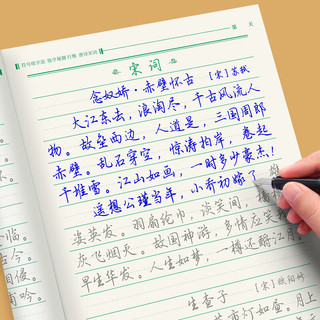 第 天
宋词
念奴娇·赤壁怀古
【宋】苏轼
大江东去,浪淘尽,千古风流人
物。故垒西边,人道是,三国周郎
赤壁。乱石穿空,惊涛拍岸,卷起
千堆雪。江山如画,一时多少豪杰!
遥想公瑾当年,小乔初嫁了
姿英发。羽扇纶巾,谈笑间,
灰飞烟灭。故国神游,多情应笑
早生华发。人生如梦,一樽还酹江月。
生查子
【宋】欧阳修
市灯如昼。月上